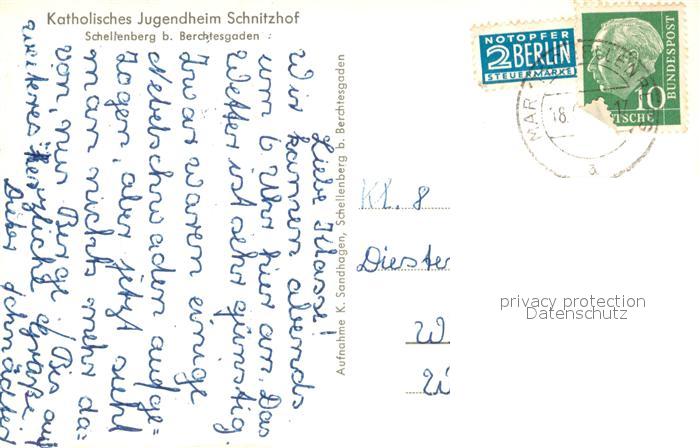 Katholisches Jugendheim Schnitzhof
Schellenberg b. Berchtesgaden
Liebe Klasse!
Wir kamen abends
um 6 Uhr hier an. Das
Wetter ist sehr günstig.
Zwar waren einige
Nebelschwaden aufge=
zogen, aber jetzt sieht
man nichts mehr da=
von, nur Berge. Bis auf
weiteres herzliche Grüße!
Dieter Schmädter
Aufnahme K. Sandhagen, Schellenberg b. Berchtesgaden
NOTOPFER
2 BERLIN
STEUERMARKE
10
DEUTSCHE BUNDESPOST
MARKT SCHELLENBERG
18.
a
Kl. 8
Diester
W
privacy protection
Datenschutz